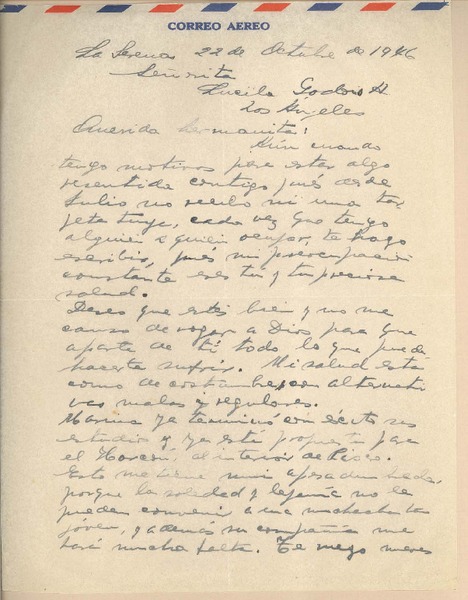 CORREO AEREO
La Serena 22 de Octubre de 1946
Señorita
Lucila Godoy A.
Los Angeles
Querida hermanita:
Aún cuando
tengo motivos para estar algo
resentida contigo pués desde
Julio no recibo ni una tar
jeta tuya, cada vez que tengo
alguien a quien ocupar, te hago
escribir, pués mi preocupación
constante eres tú y tu preciosa
salud.
Deseo que estés bien y no me
canso de rogar a Dios para que
aparte de ti todo lo que pueda
hacerte sufrir. Mi salud está
como de costumbre, con alternati
vas malas y regulares.
ya terminó con éxito sus
estudios y ya está propuesta para
el Horcón, al interior de
Esto me tiene muy apesadumbrada,
porque la soledad y lejanía no le
pueden convenir a una muchacha tan
jóven, y además su compañía me
hará mucha falta. Te ruego